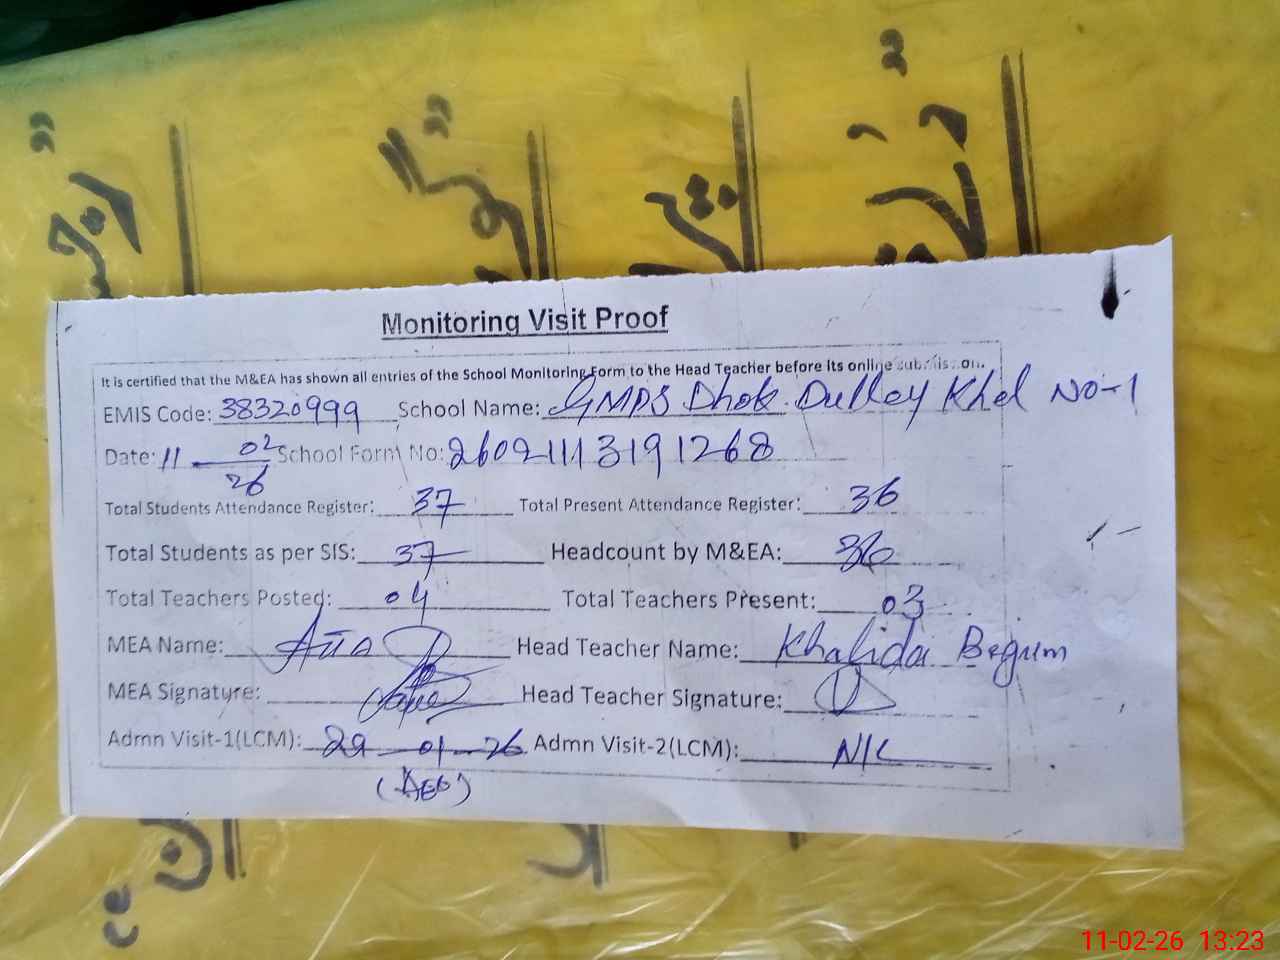 Monitoring Visit Proof
It is certified that the M&EA has shown all entries of the School Monitoring Form to the Head Teacher before its online submission.
EMIS Code: 38320999 School Name: GMPS Dhok Dulley Khel No-1
Date: 11 - 02 26 School Form No: 26021113191268
Total Students Attendance Register: 37 Total Present Attendance Register: 36
Total Students as per SIS: 37 Headcount by M&EA: 36
Total Teachers Posted: 04 Total Teachers Present: 03
MEA Name: Head Teacher Name: Khalida Begum
MEA Signature: Head Teacher Signature:
Admn Visit-1(LCM): 29-01-26 Admn Visit-2(LCM): NIL
(AEO)
11-02-26 13:23